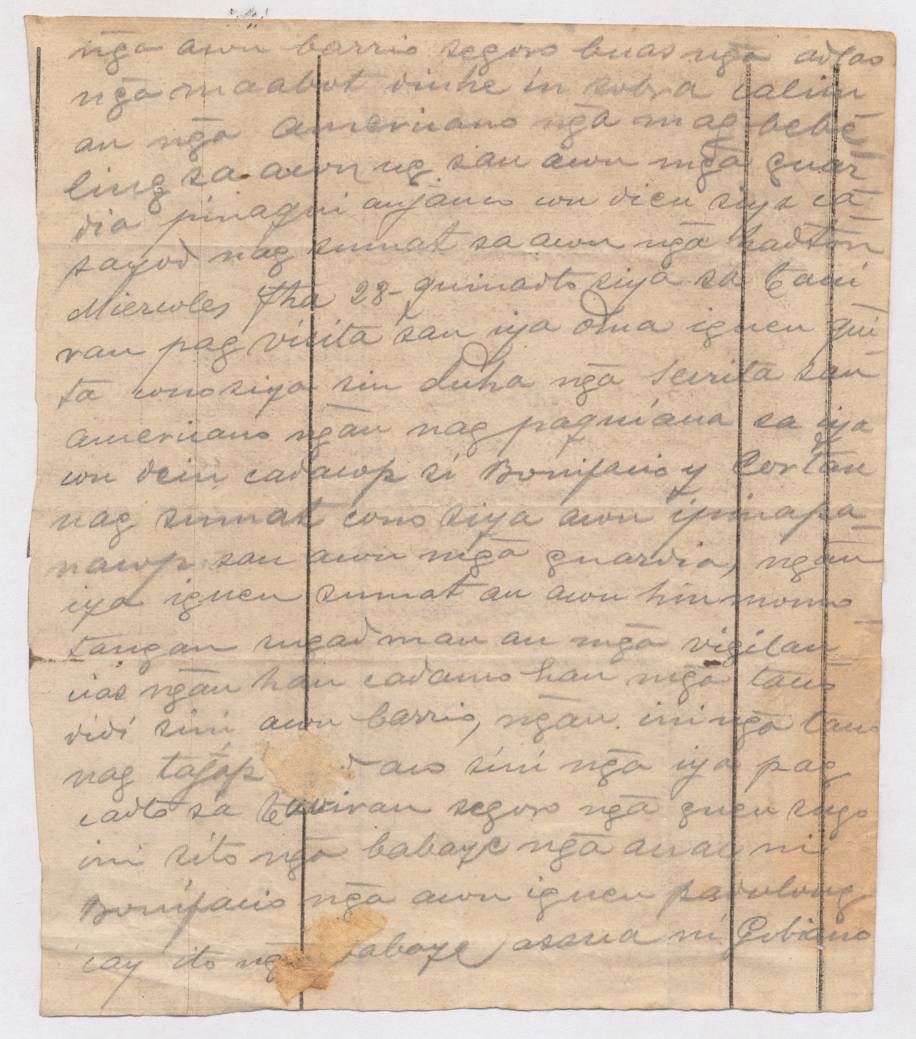 nḡa acon barrio seguro buas nḡa adlao
nḡa maabot dinhe in sobra calim
an nḡa americano nḡa mag bebe
ling sa acon ug san acon mḡa guar
dia pinaqui anjanco con dien siya ca
sayod nag sumat sa acon nḡa hadton
Miercoles fha 28- guinadto siya sa Caui
ran pag vicita san iya oma iguen qui
ta cono siya sin duha nḡa secrita san
americano nḡan nag paquiana sa iya
con dein cadacop si Bonifacio y Cortan
nag sumat cono siya acon ipinapa
nacop san acon mḡa guardia, nḡan
iya iguen sumat an acon hin momo
tangan ungad man an mḡa vigilan
cias nḡan han cadamo han mḡa tauo
didi sini acon barrio, nḡan ini nḡa tauo
nag tajap d aco sini nḡa iya pag
cadto sa Cauiran seguro nḡa guen sugo
ini sito nḡa babaye nḡa anac ni
Bonifacio nḡa acon iguen padolong
cay ito nḡa babaye asaua ni Gobiano